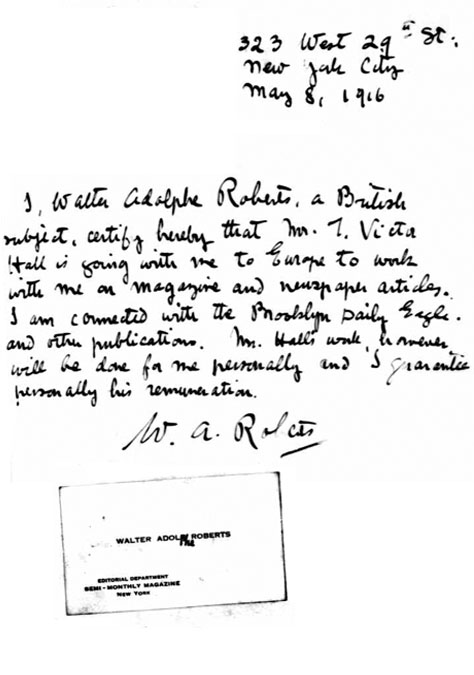 323 West 29th St.
New York City
May 8, 1916
I, Walter Adolphe Roberts, a British
subject, certify hereby that Mr. T. Victor
Hall is going with me to Europe to work
with me on magazine and newspaper articles.
I am connected with the Brooklyn Daily Eagle.
and other publications. Mr. Hall's work, however
will be done for me personally and I guarantee
personally his remuneration.
W. A. Roberts
WALTER ADOLPHE ROBERTS
EDITORIAL DEPARTMENT
SEMI-MONTHLY MAGAZINE
NEW YORK